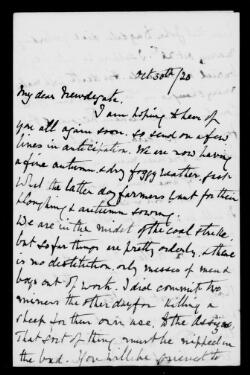 Oct 30th/20
My dear Newdegate.
I am hoping to hear of
you all again soon. so send on a few
lines in anticipation. We are now having
a fine autumn & dry foggy weather, just
what the latter day farmers want for their
ploughing & autumn sowing.
We are in the midst of the coal strike,
but so far things are pretty orderly, & there
is no destitution, only masses of men &
boys out of work. I did commit two
miners the other day for killing a
sheep for their own use, to the Assizes.
That sort of thing must be nipped in
the bud. You will be grieved to